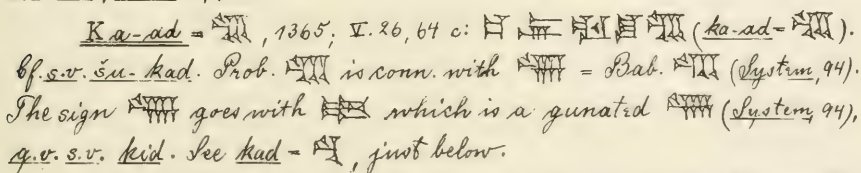 Ka-ad = , 1365; V. 26, 64 c: (ka-ad = ).
Cf. s.v. šu-kad. Prob. is conn. with = Bab. (System, 94).
The sign goes with which is a gunated (System, 94),
q.v. s.v. kid. See kad = , just below.